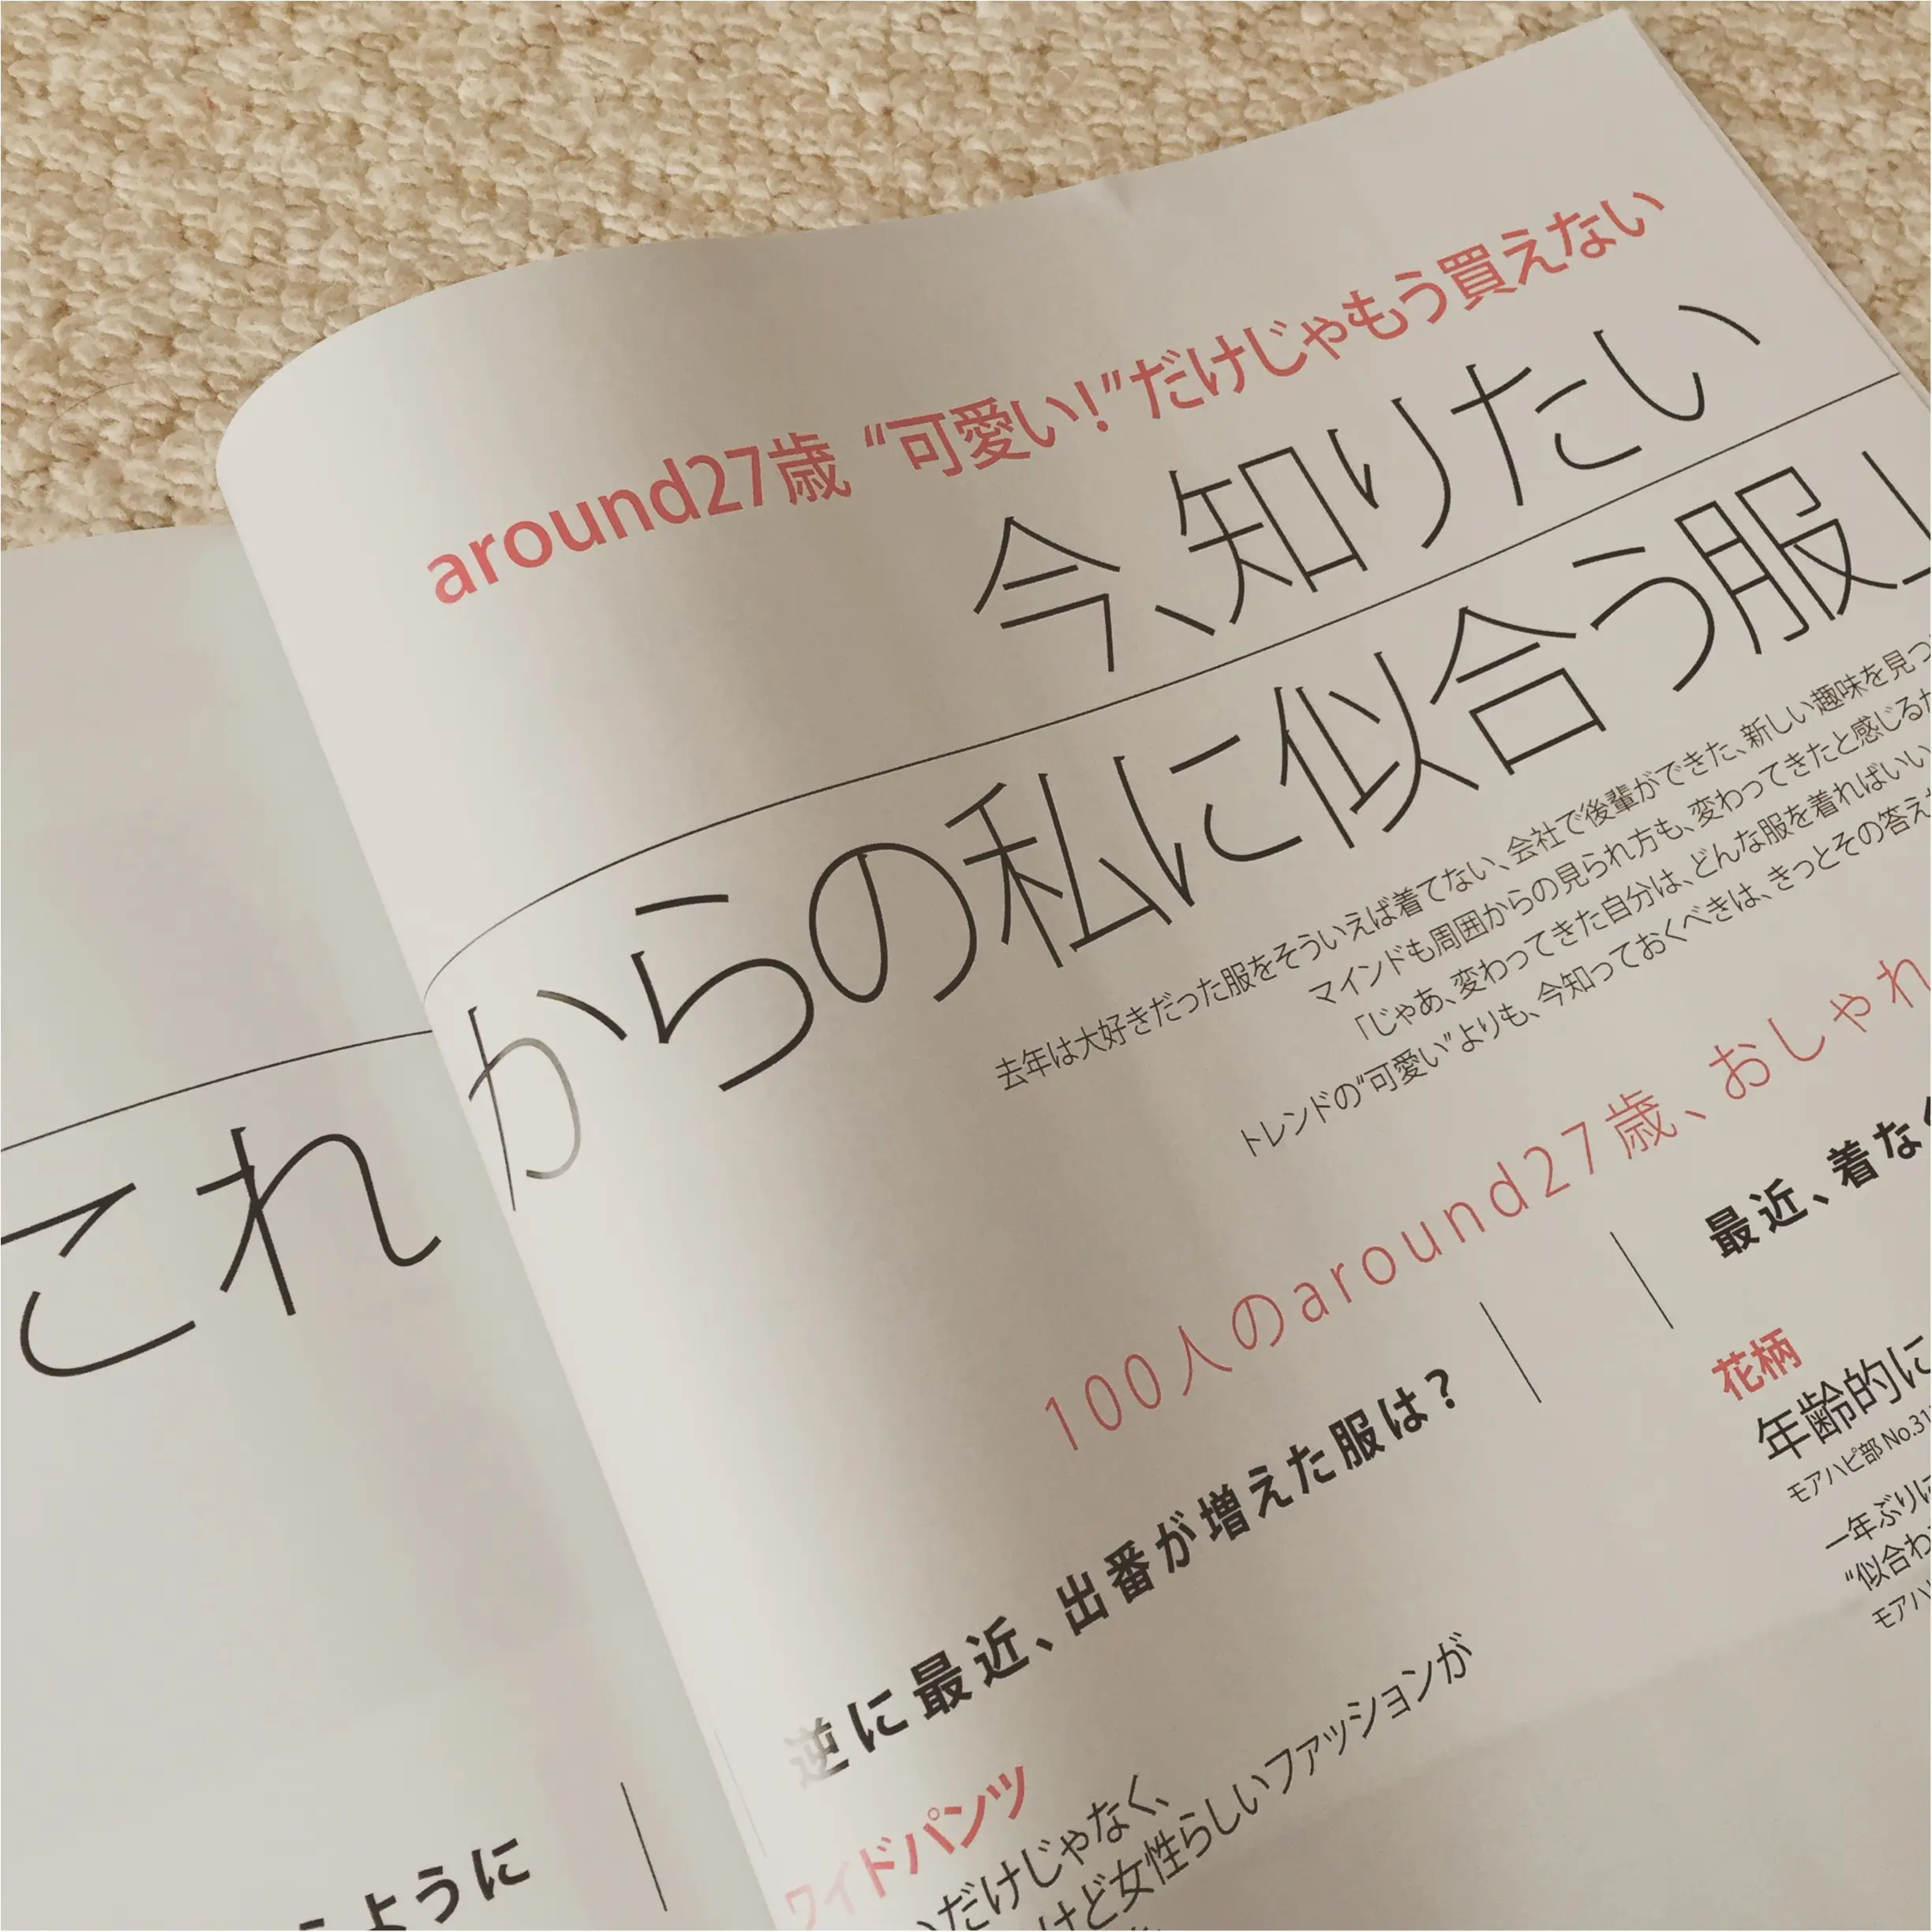 around27歳 “可愛い!”だけじゃもう買えない
今、知りたい
これからの私に似合う服」
去年は大好きだった服をそういえば着てない、会社で後輩ができた、新しい趣味を見つ
マインドも周囲からの見られ方も、変わってきたと感じる
「じゃあ、変わってきた自分は、どんな服を着ればいい
トレンドの“可愛い”よりも、今知っておくべきは、きっとその答え
100人のaround27歳、おしゃれ
最近、着なく
花柄
年齢的に
モアハピ部 No.31
一年ぶりに
“似合わ
モアハ
逆に最近、出番が増えた服は?
ワイドパンツ
だけじゃなく、
けど女性らしいファッションが
ように